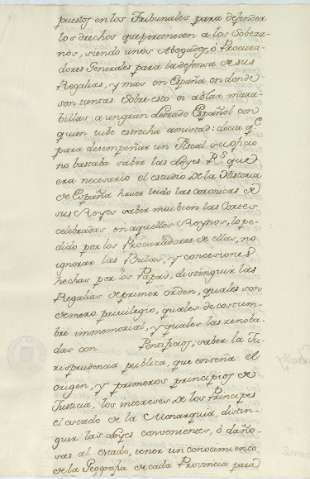 puestos en los Tribunales para defender
los drechos que pertenecen a los Sobera-
nos, siendo unos Abogados, ò Procura-
dores Generales para la defensa de sus
Regalias, y mas en España en donde
son tantas. Sobre esto oì ablar mara-
billas a un gran Letrado Español con
quien tube estrecha amistad: decia q.e
para desempeñar un Fiscal su oficio
no bastaba saber las Leyes R.s que
era necesario el estudio de la Historia
de España haver leido las Coronicas de
sus Reyes saber mui bien las Cortes
celebradas en aquellos Reynos, lo pe-
dido por los Procuradores de ellas, no
ignorar las Bulas, y concesiones
hechas por los Papas, distinguir las
Regalias de primer orden, quales son
de mero privilegio, quales de costum-
bre immemorial, y quales las renoba-
das con Pontificios, saber la Ju-
risprudencia publica, que enseña el
origen, y primeros principios de
Justicia, los intereses de los Principes
el estado de la Monarquia, distin-
guir las Leyes convenientes, ò daño-
sas al estado, tener un conocimiento
de la Geografia de cada Provincia para